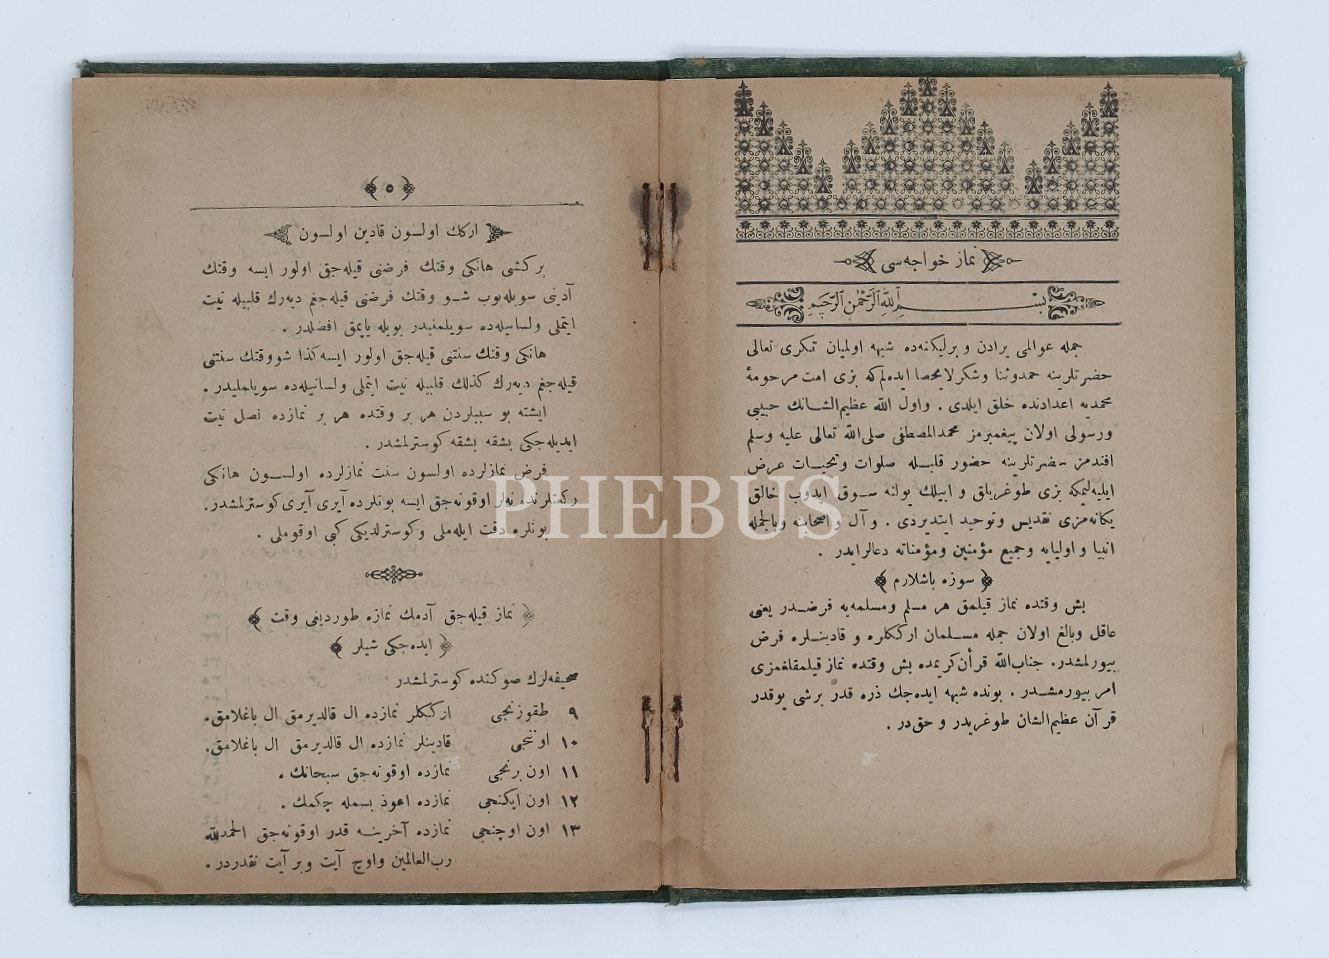 نماز خواجه‌سی
بسم الله الرحمن الرحیم
جمله عوالمی برادن و برلیکنه‌ده شبهه اولمیان تکری تعالی
حضرتلرینه حمدوثنا وشکر لایحصا ایده‌لم‌که بزی امت مرحومهٔ
محمدیه اعدادنده خلق ایلدی . واول الله عظیم‌الشانك حبیبی
ورسولی اولان پیغمبرمز محمدالمصطفی صلی‌الله تعالی علیه وسلم
افندمز حضرتلرینه حضور قلبـله صلوات وتحیـات عرض
ایلیه‌لیمکه بزی طوغریلق و اییلك یولنه سـوق ایدوب خالق
یکانه‌مزی تقدیس وتوحید ایتدیردی . و آل واصحابنه وبالجمله
انبیا و اولیایه وجمیع مؤمنین ومؤمناته دعالر ایدر .
سوزه باشلارم
بش وقتده نماز قیلمق هر مسلم ومسلمه‌یه فرضـدر یعنی
عاقل وبالغ اولان جمله مسـلمان ارککلره و قادینـلره فرض
بیورلمشدر. جناب‌الله قرآن‌کریمده بش وقتده نماز قیلمقلغمزی
امر بیورمشـدر . بونده شبهه ایده‌جك ذره قدر برشی یوقدر
قرآن عظیم‌الشان طوغریدر و حق‌در .
٥
ارکك اولسون قادین اولسون
برکشی هانکی وقتك فرضنی قیله‌جق اولور ایسه وقتك
آدنی سویله‌یوب شـو وقتك فرضنی قیله‌جغم دیه‌رك قلبیله نیت
ایتملی ولسانیله‌ده سویلمیدر بویله یاپمق افضلدر .
هانکی وقتك سنتنی قیله‌جق اولور ایسه‌کذا شووقتك سنتنی
قیله‌جغم دیه‌رك کذلك قلبیله نیت ایتملی ولسانیله‌ده سویلملیدر .
ایشته بو سببلردن هر بر وقتده هر بر نمازده نصل نیت
ایدیله‌جکی بشقه بشقه کوسترلمشدر .
فرض نمازلرده اولسون سنت نمازلرده اولسـون هانکی
رکعتلرنده نه‌لر اوقونه‌جق ایسه بونلرده آیری آیری‌کوسترلمشدر.
بونلره دقت ایله‌ملی وکوسترلدیکی کبی اوقوملی .
نماز قیله‌جق آدمك نمازه طوردیغی وقت
ایده‌جکی شیلر
صحیفه‌لرك صوکنده کوسترلمشدر
٩ طقوزنجی ارککلر نمازده ال قالدیرمق ال باغلامق.
١٠ اوننجی قادینلر نمازده ال قالدیرمق ال باغلامق.
١١ اون برنجی نمازده اوقونه‌جق سبحانك .
١٢ اون ایکنجی نمازده اعوذ بسمله چکمك .
١٣ اون اوچنجی نمازده آخرینـه قدر اوقونه‌جق الحمدلله
رب‌العالمین واوچ آیت وبر آیت نقدردر .
PHEBUS